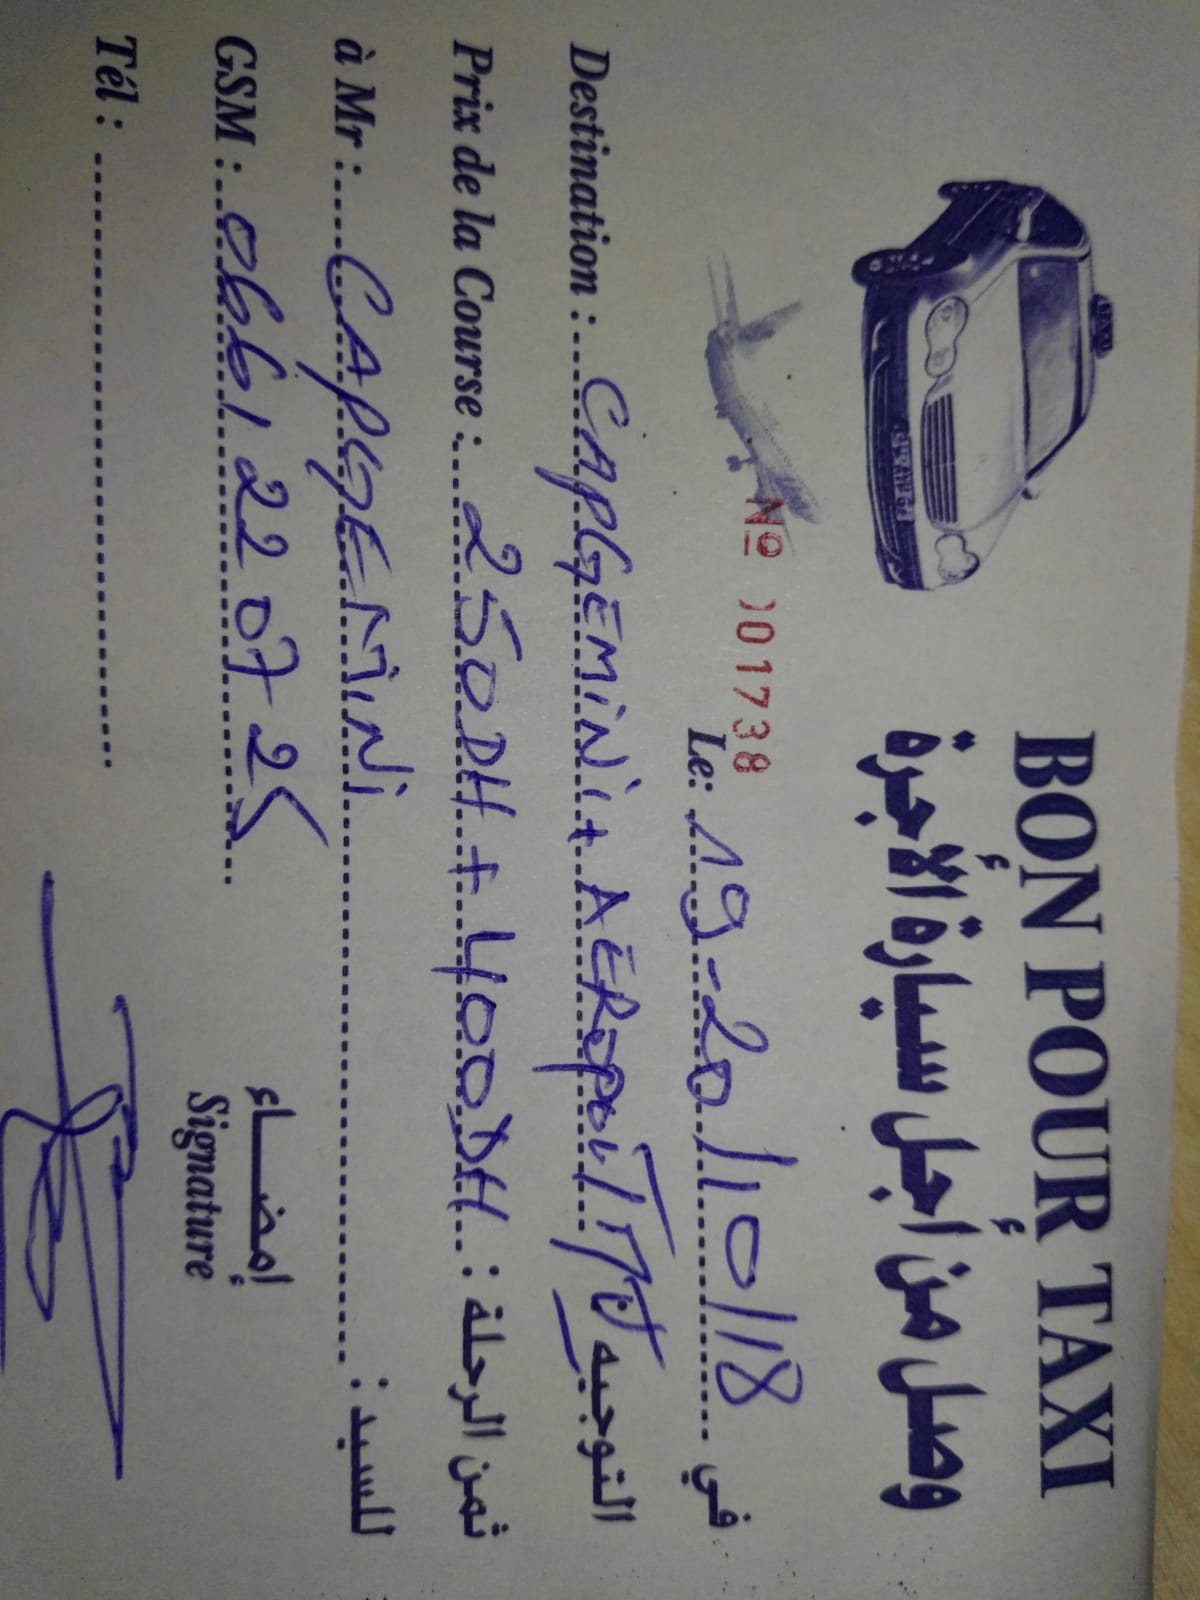 BON POUR TAXI
وصل من أجل سيارة الأجرة
TAXI
Nº 001738
Le: 19-20/10/18 في
Destination : CAPGEMINI + AEROPORT التوجيه
Prix de la Course : 250DH + 400DH : ثمن الرحلة
à Mr : CAPGEMINI : للسيد
GSM : 0661 22 07 25
إمضاء
Signature
Tél :